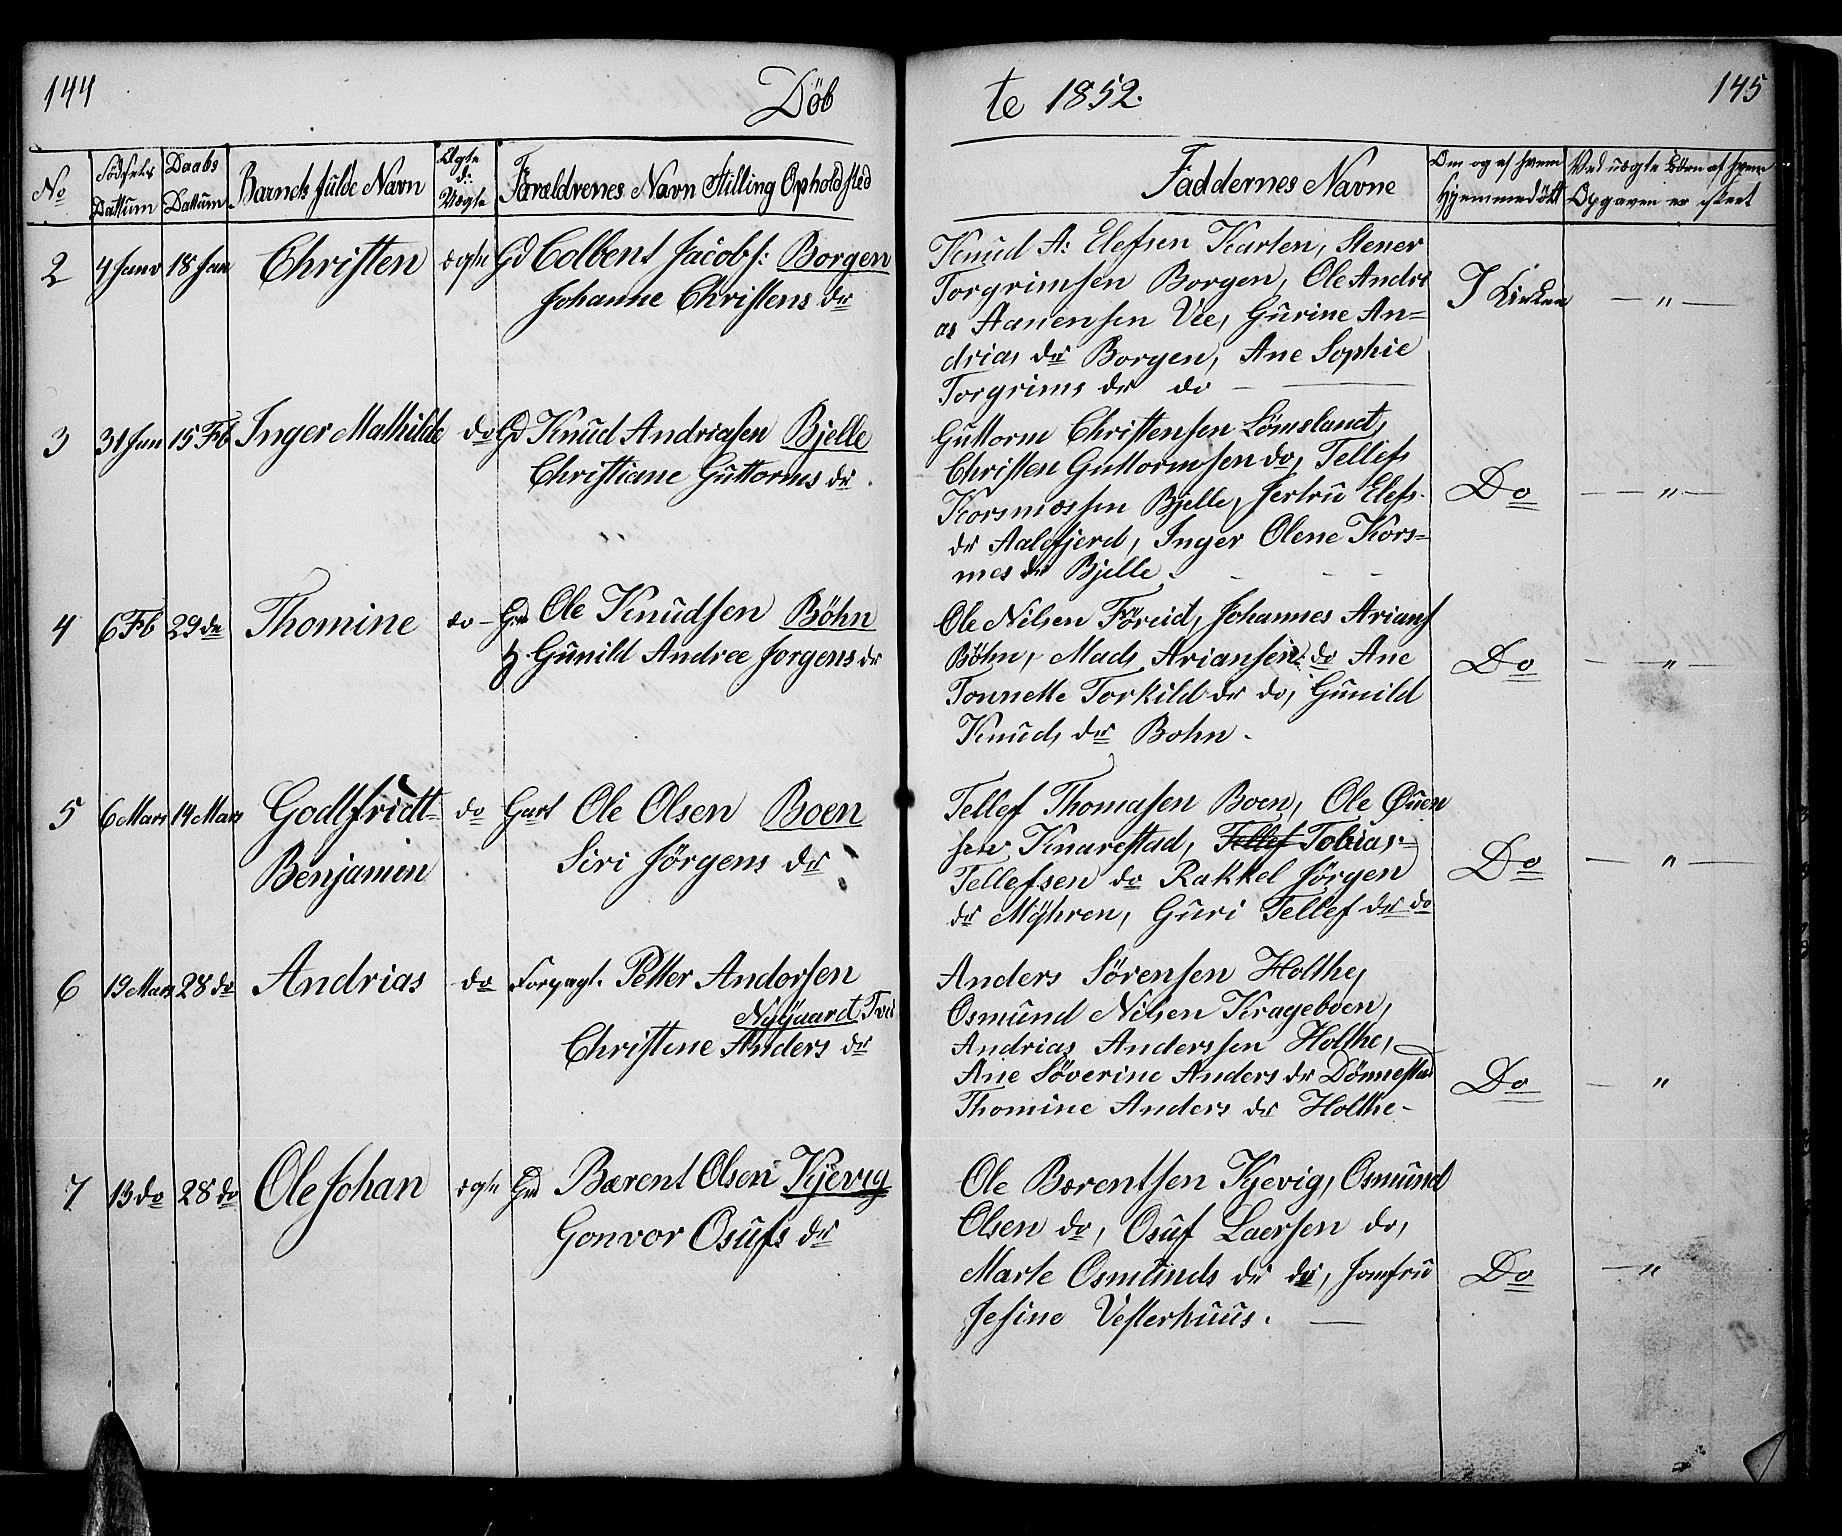 144
Döbte 1852.
145
No
Födsels Dattum
Daabs Dattum
Barnets fulde Navn
Ægte d: Uægte
Foræeldrenes Navn Stilling Opholdsted
Faddernes Navne
Om og af hvem Hjemmedöbt
Ved uægte Börn af hvem Opgaven er skeet
2 4 Janv 18 Jan Christen ægte Gd Colbent Jacobs: Borgen
Johanne Christens dr
Knud A: Elefsen Karten, Stener
Torgrimsen Borgen, Ole Andri
as Aanensen Vee, Gurine An=
drias dr Borgen, Ane Sophie
Torgrims dr do
I Kirken — " —
3 31 Jan 15 Feb Inger Mathilde do Gd Knud Andriasen Bjelle
Christiane Guttorms dr.
Guttorm Christensen Lömsland,
Christen Guttormsen do, Tellef
Korsmossen Bjelle, Jertru Elefs.
dr Aalefjerd, Inger Olene Kors=
mes dr Bjelle.
Do — " —
4 6 Fb 29 de Thomine do Gd Ole Knudsen Böhn
Gunild Andree Jorgens dr
Ole Nilsen Föreid, Johannes Arians
Böhn, Mads Ariansen do Ane
Tonnette Torkild dr do, Gunild
Knuds dr Bohn.
Do — " —
5 6 Mars 14 Mars Godtfridt= do Gart Ole Olsen Boen
Benjamin Siri Jörgens dr
Tellef Thomasen Boen, Ole Øuen
sen Knarestad, Tellef Tobias=
Tellefsen do Rakkel Jörgen
dr Myhren, Guri Tellef dr do
Do — " —
6 19 Mars 28 do Andrias do Forpagt. Petter Andorsen
Nygaard Tved
Christine Anders dr
Anders Sörensen Holthe,
Osmund Nilsen Krageboen,
Andrias Anderssen Holthe,
Ane Söverine Anders dr Dönnestad
Thomine Anders dr Holthe-
Do — "
7 13 do 28 do Ole Johan ægte Gd Bærent Olsen Kjevig
Gonvor Osufs dr
Ole Bærentsen Kjevig, Osmund
Olsen do, Osuf Laersen do,
Marte Osmunds dr do, Jomfru
Jesine Vesterhuus. —
Do — "